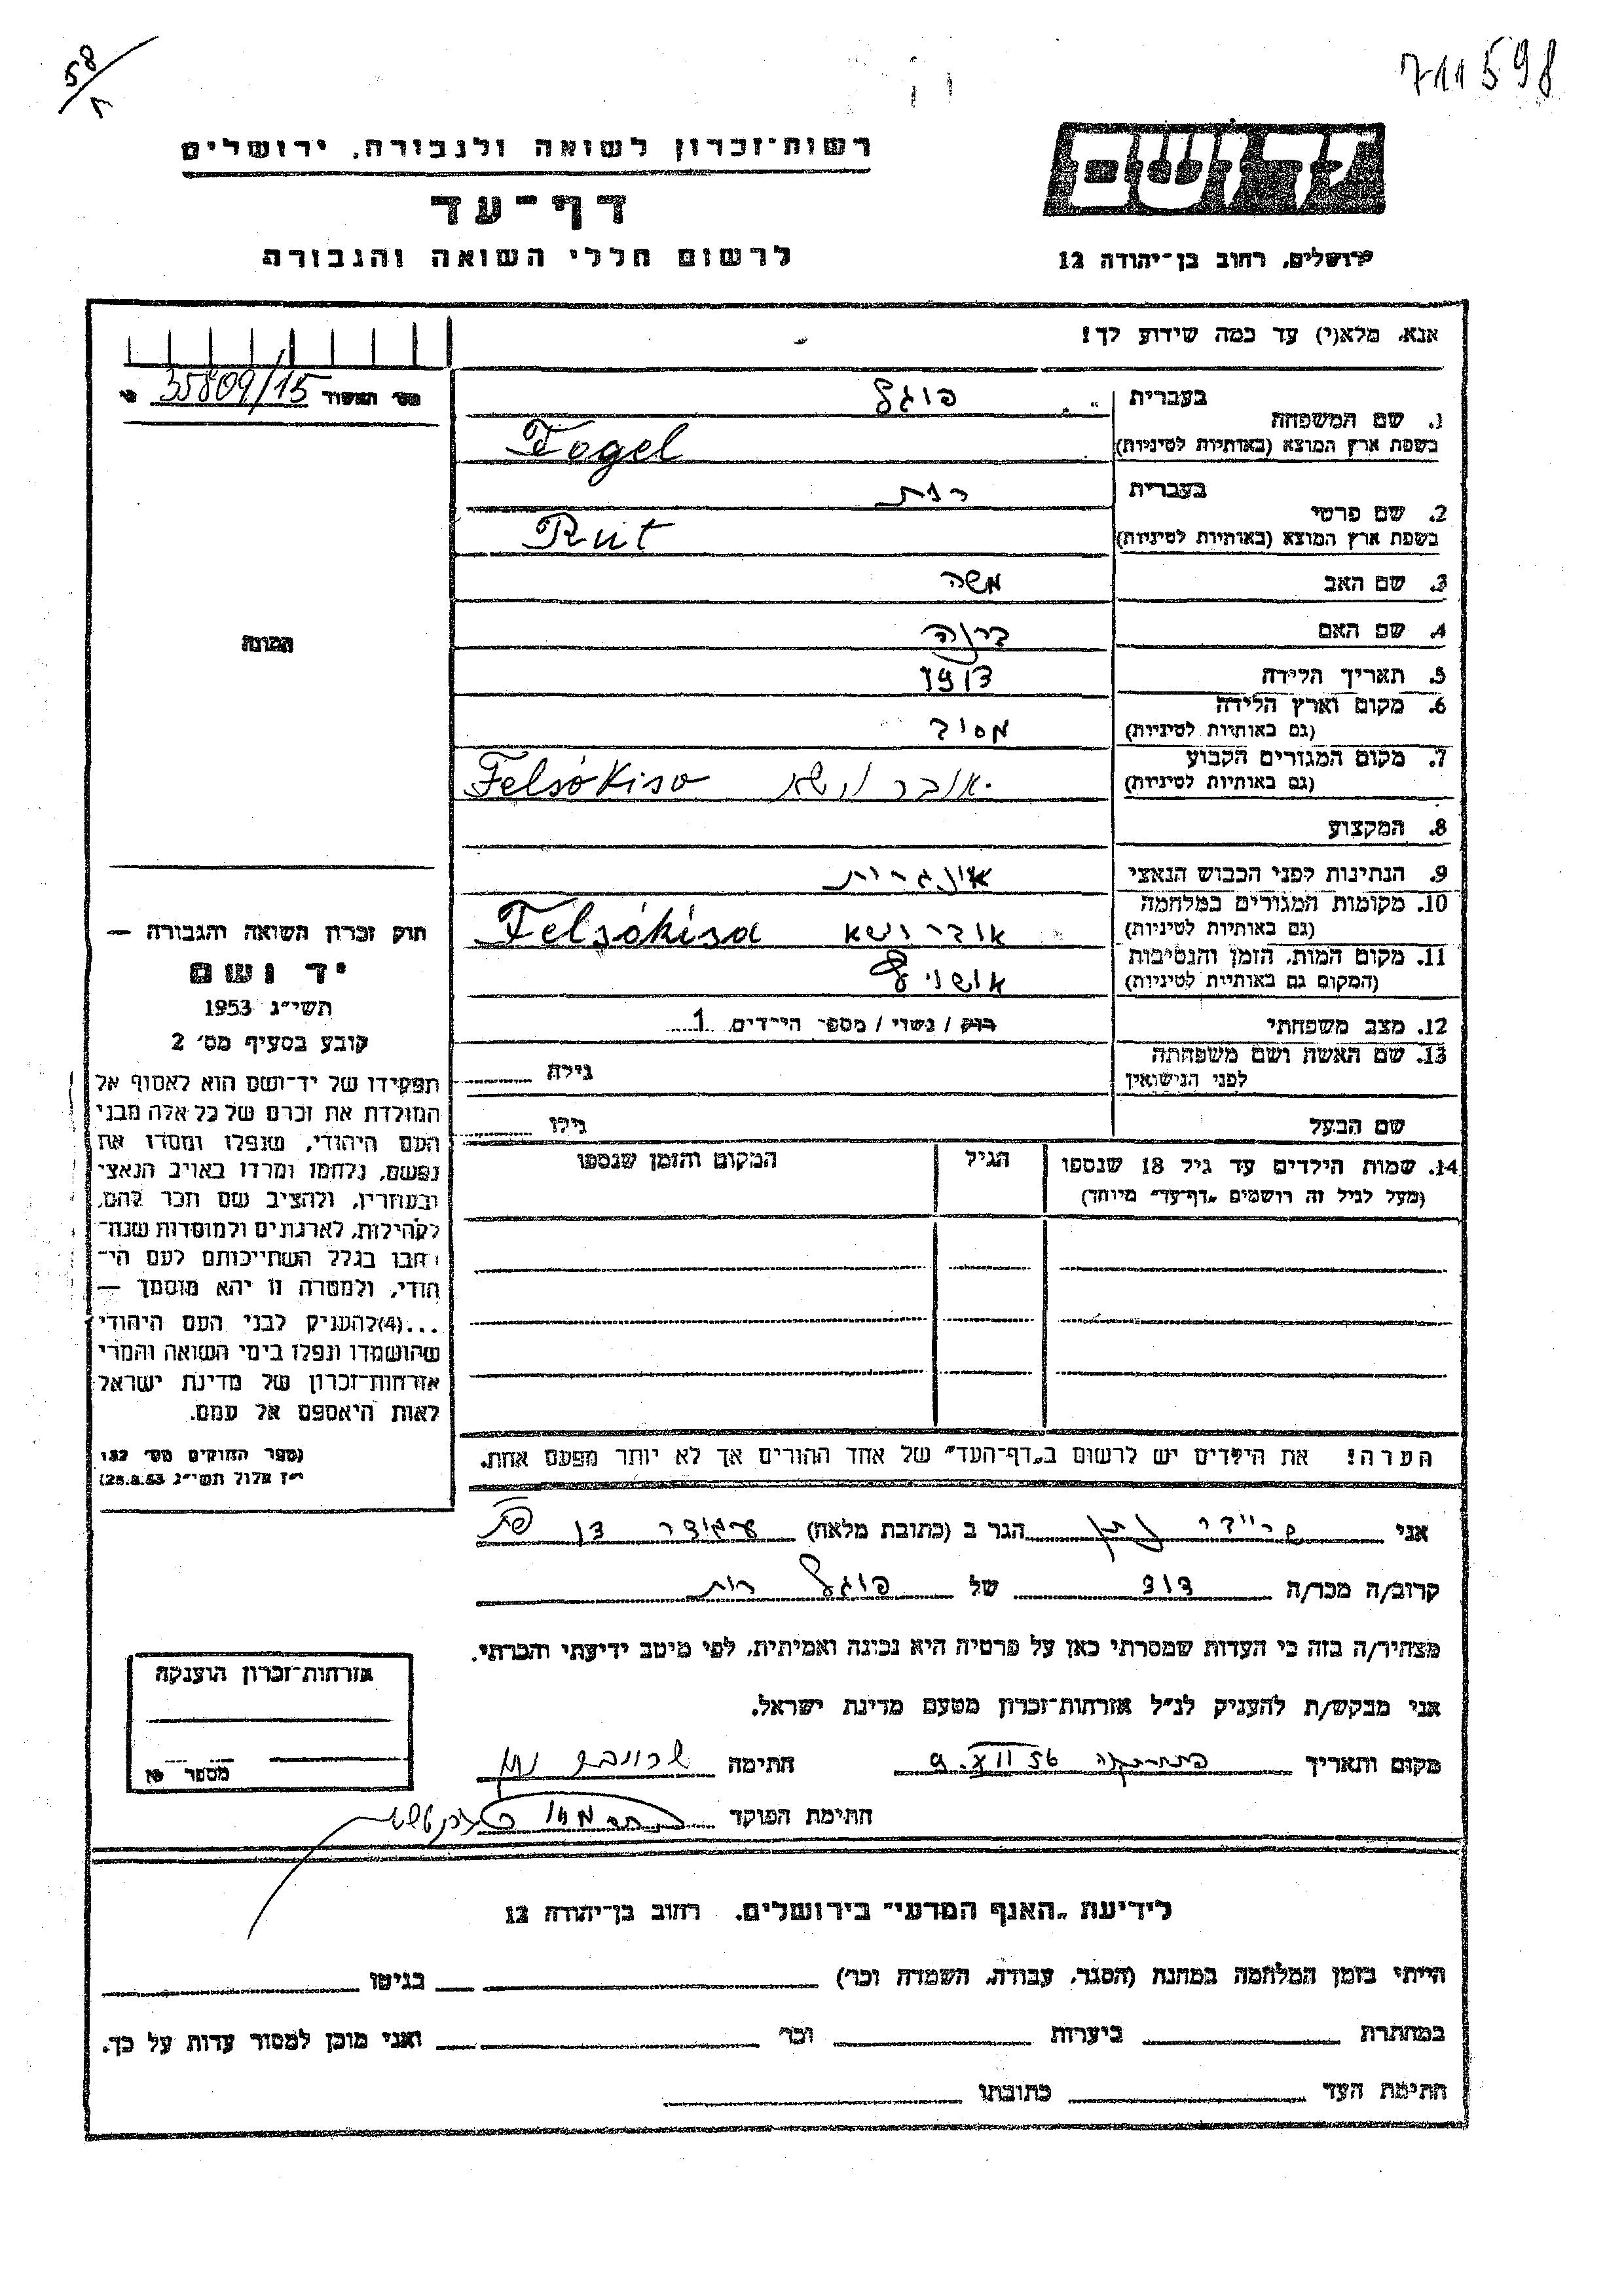 58/ר
711598
יד ושם
ירושלים, רחוב בן־יהודה 12
רשות־זכרון לשואה ולגבורה, ירושלים
דף־עד
לרשום חללי השואה והגבורה
אנא, מלא(י) עד כמה שידוע לך!
35809/15
1. שם המשפחה בעברית פוגל
בשפת ארץ המוצא (באותיות לטיניות) Fogel
2. שם פרטי בעברית רות
בשפת ארץ המוצא (באותיות לטיניות) Rut
3. שם האב משה
4. שם האם
5. תאריך הלידה
6. מקום וארץ הלידה (גם באותיות לטיניות)
7. מקום המגורים הקבוע (גם באותיות לטיניות) אובר Felsőkiso
8. המקצוע
9. הנתינות לפני הכבוש הנאצי אונגרית
10. מקומות המגורים במלחמה (גם באותיות לטיניות) אובר Felsőkisa
11. מקום המות, הזמן והנסיבות (המקום גם באותיות לטיניות)
12. מצב משפחתי רוק / נשוי / מספר הילדים 1
13. שם האשה ושם משפחתה לפני הנישואין גילה
שם הבעל גילו
14. שמות הילדים עד גיל 18 שנספו הגיל המקום והזמן שנספו
(מעל לגיל זה רושמים „דף־עד" מיוחד)
הערה! את הילדים יש לרשום ב„דף־העד" של אחד ההורים אך לא יותר מפעם אחת.
התמונה
חוק זכרון השואה והגבורה —
יד ושם
תשי"ג 1953
קובע בסעיף מס׳ 2
תפקידו של יד־ושם הוא לאסוף אל
המולדת את זכרם של כל אלה מבני
העם היהודי, שנפלו ומסרו את
נפשם, נלחמו ומרדו באויב הנאצי
ובעוזריו, ולהציב שם וזכר להם,
לקהילות, לארגונים ולמוסדות שנח־
רבו בגלל השתייכותם לעם הי־
הודי, ולמטרה זו יהא מוסמך —
...(4) להעניק לבני העם היהודי
שהושמדו ונפלו בימי השואה והמרי
אזרחות־זכרון של מדינת ישראל
לאות היאספם אל עמם.
(ספר החוקים מס׳ 132
י"ז אלול תשי"ג 28.8.53)
אני הגר ב (כתובת מלאה)
קרוב/ה מכר/ה דוד של פוגל רות
מצהיר/ה בזה כי העדות שמסרתי כאן על פרטיה היא נכונה ואמיתית, לפי מיטב ידיעתי והכרתי.
אני מבקש/ת להעניק לנ"ל אזרחות־זכרון מטעם מדינת ישראל.
מקום ותאריך 9.XII 56 חתימה
חתימת הפוקד
אזרחות־זכרון הוענקה
מספר
לידיעת „האגף המדעי" בירושלים, רחוב בן־יהודה 12
הייתי בזמן המלחמה במחנה (הסגר, עבודה, השמדה וכר׳) בגיטו
במחתרת ביערות וכר׳ ואני מוכן למסור עדות על כך.
חתימת העד כתובתו